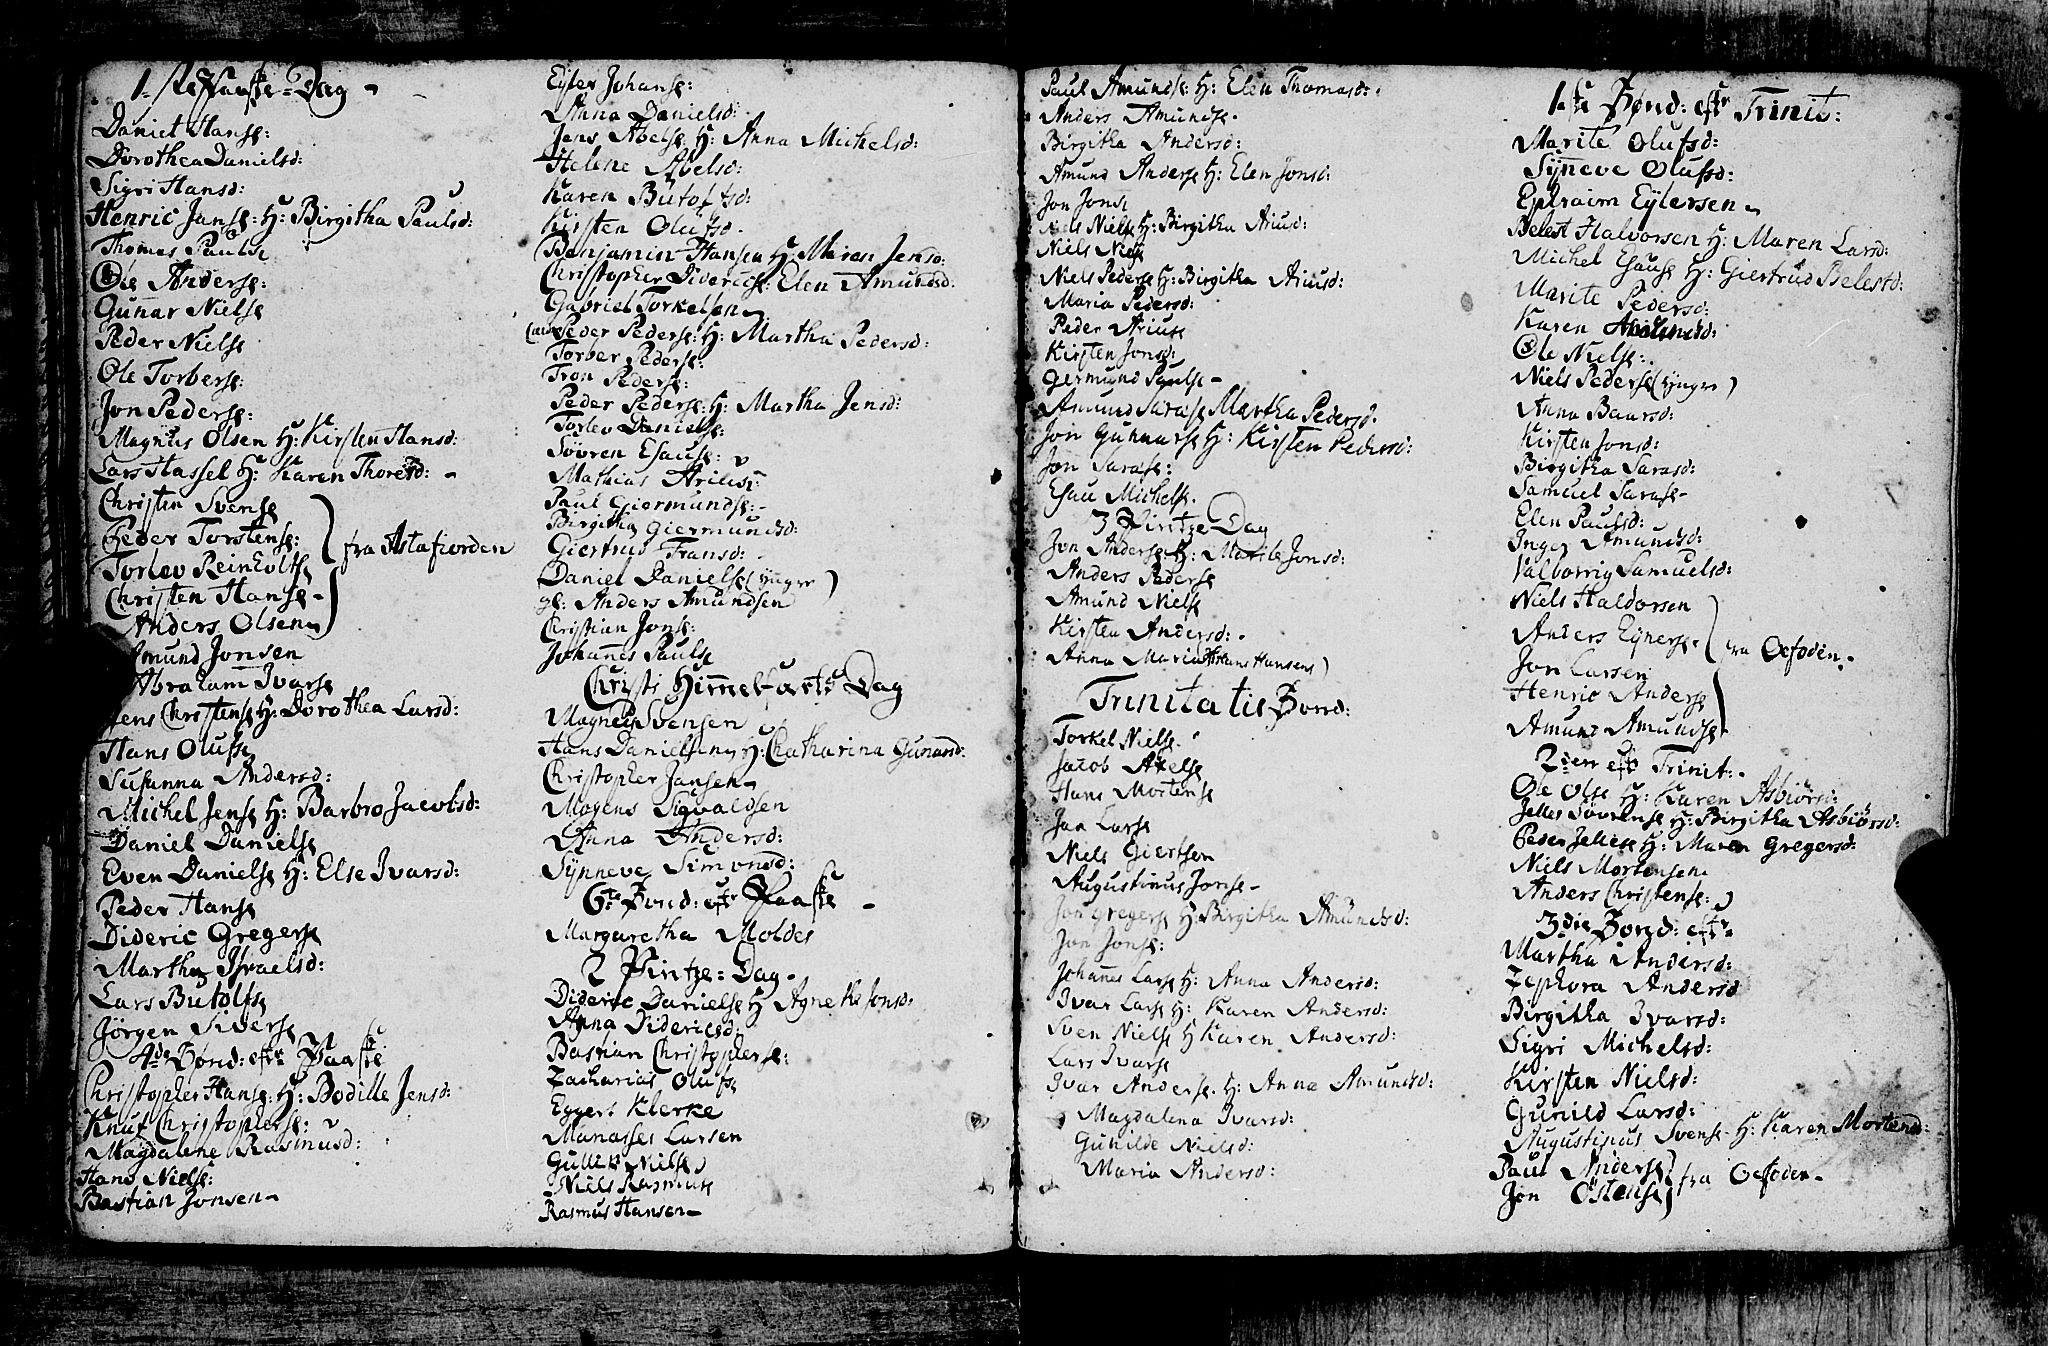 1. ste Paaske-Dag -
Daniel Hanse:
Dorothea Danielsd:
Sigri Hansd:
Henric Janse: H: Birgitha Paulsd:
Thomas Paulse
Ole Anderse:
Gunnar Nielse
Peder Nielse
Ole Torberse:
Jon Pederse:
Magnus Olsen H: Kirsten Hansd:
Lars Hassel H: Karen Thoresd: -
Christen Svense
Peder Torstense:
Torlev Reinholtse
fra Astafiorden
Christen Hanse -
Anders Olsen
Amund Jonsen
Abraham Ivarse
Jens Christense H: Dorothea Larsd:
Hans Olufse
Susanna Andersd:
Michel Jense H: Barbro Jacobsd:
Daniel Danielse
Even Danielse H: Else Ivarsd:
Peder Hanse
Dideric Gregerse
Martha Israelsd:
Lars Butolfse
Jörgen Siverse
4de Sønd: eftr Paaske
Christopher Hanse: H: Bodille Jensd:
Knut Christopherse:
Magdalene Rasmusd:
Hans Nielse:
Bastian Jonsen -
Eyler Johanse:
Anna Danielsd:
Jens Abelse H: Anna Michelsd:
Helene Abelsd:
Karen Butoftsd:
Kirsten Olufsd.
Benjamin Hansen H: Maren Jensd:
Christopher Diderichse: Elen Amundsd.
Gabriel Torkelsen
Peder Pederse: H: Martha Pedersd:
Torber Pederse:
Tron Pederse:
Peder Pederse: H: Martha Jensd:
Torlev Danielse:
Søvren Esause:
Mathias
Paul Giermundse: -
Birgitha Giermundsd:
Giertrud Fransd:
Daniel Danielse (ynger)
gl: Anders Amundsen
Christian Jonse:
Johannes Paulse
Christi Himmelfarts Dag
Magnus Svensen
Hans Danielsen H: Chatharina Gunarsd:
Christopher Jansen
Mogens Sigvaldsen
Anna Andersd:
Synneve Simonsd:
6te Sønd: eftr Paaske -
Margaretha Moldes
2 Pintze-Dag -
Dideric Danielse H Agnethe Jonsd:
Anna Didericsd:
Bastian Christopherse:
Zacharias Olufse
Eggert Klerke
Manasses Larsen
Gullek Nielse
Niels Rasmuse
Rasmus Hansen -
Paul Amundse: H: Elen Thomasd:
Anders Amundse.
Birgitha Andersd:
Amund Anderse H: Elen Jonsd:
Jon Jonse
Niels Nielse H: Birgitha Ariusd:
Niels Nielse
Niels Pederse H: Birgitha Ariusd:
Maria Pedersd:
Peder Ariuse
Kirsten Jonsd:
Germund Paulse -
Amund Sarase Martha Pedersd.
Jon Gunnarse H: Kirsten Pedersd:
Jon Sarase:
Esau Michelse.
3 Pintze Dag
Jon Anderse H: Marite Jonsd:
Anders Pederse
Amund Nielse
Kirsten Andersd:
Anna Maria (Hans Hansens)
Trinitatis Sønd:
Torkel Nielse.
Jacob Axelse
Hans Mortense
Jan Larse
Niels Giertsen
Augustinus Jonse -
Jon Gregerse H: Birgitha Amundsd:
Jon Jonse:
Johannes Larse H: Anna Andersd:
Ivar Larse H: Karen Andersd:
Sven Nielse H Karen Andersd:
Lars Ivarse
Ivar Anderse. H: Anna Amundsd:
Magdalena Ivarsd:
Gunilde Nielsd:
Maria Andersd:
1ste Sønd: eftr Trinit:
Marite Olufsd:
Synneve Olufsd:
Ephraim Eylersen
Belest Halvorsen H: Maren Larsd:
Michel Esause H: Giertrud Belestd:
Marite Pedersd:
Karen
Ole Nielse:
Niels Pederse (ynger)
Anna Baarsd:
Kirsten Jonsd:
Birgitha Sarasd:
Samuel Sarase -
Elen Paulsd:
Inger Amundsd:
Valborrig Samuelsd:
Niels Haldorsen
Anders Eynerse.
fra Oefoden.
Jon Larsen
Henric Anderse
Amund Amundse
2den eftr Trinit:
Ole Olse H: Karen Asbiörsd:
Jelles Søvrense H: Birgitha Asbiørsd:
Peder Jellese H: Maren Gregersd:
Niels Mortensen
Anders Christense:
3die Sønd: eftr
Martha Andersd:
Zephora Andersd
Birgitha Ivarsd:
Sigri Michelsd:
Kirsten Nielsd:
Gunild Larsd:
Augustinus Svense H: Karen Mortensd:
Paul Anderse
fra Oefoden -
Jon Östense